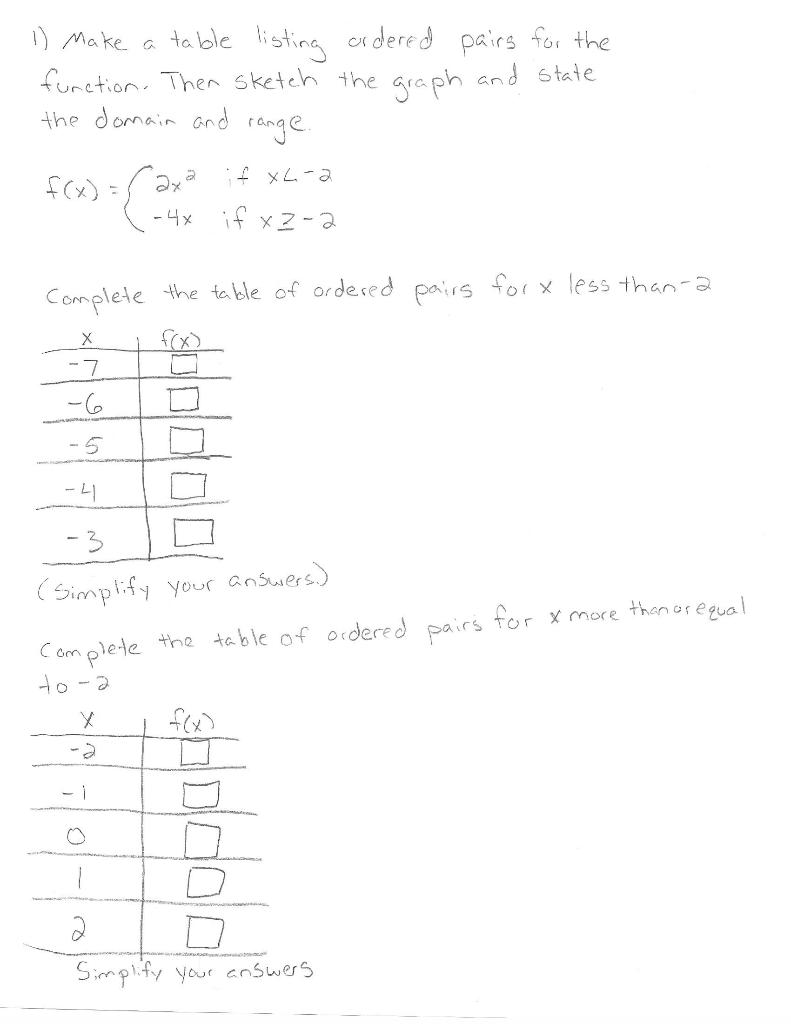 1) Make a table listing ordered pairs for the
function. Then sketch the graph and state
the domain and range.
f(x) = { 2x² if x < -2
-4x if x ≥ -2
Complete the table of ordered pairs for x less than -2
x f(x)
-7
-6
-5
-4
-3
(Simplify your answers.)
Complete the table of ordered pairs for x more than or equal
to -2
x f(x)
-2
-1
0
1
2
Simplify your answers